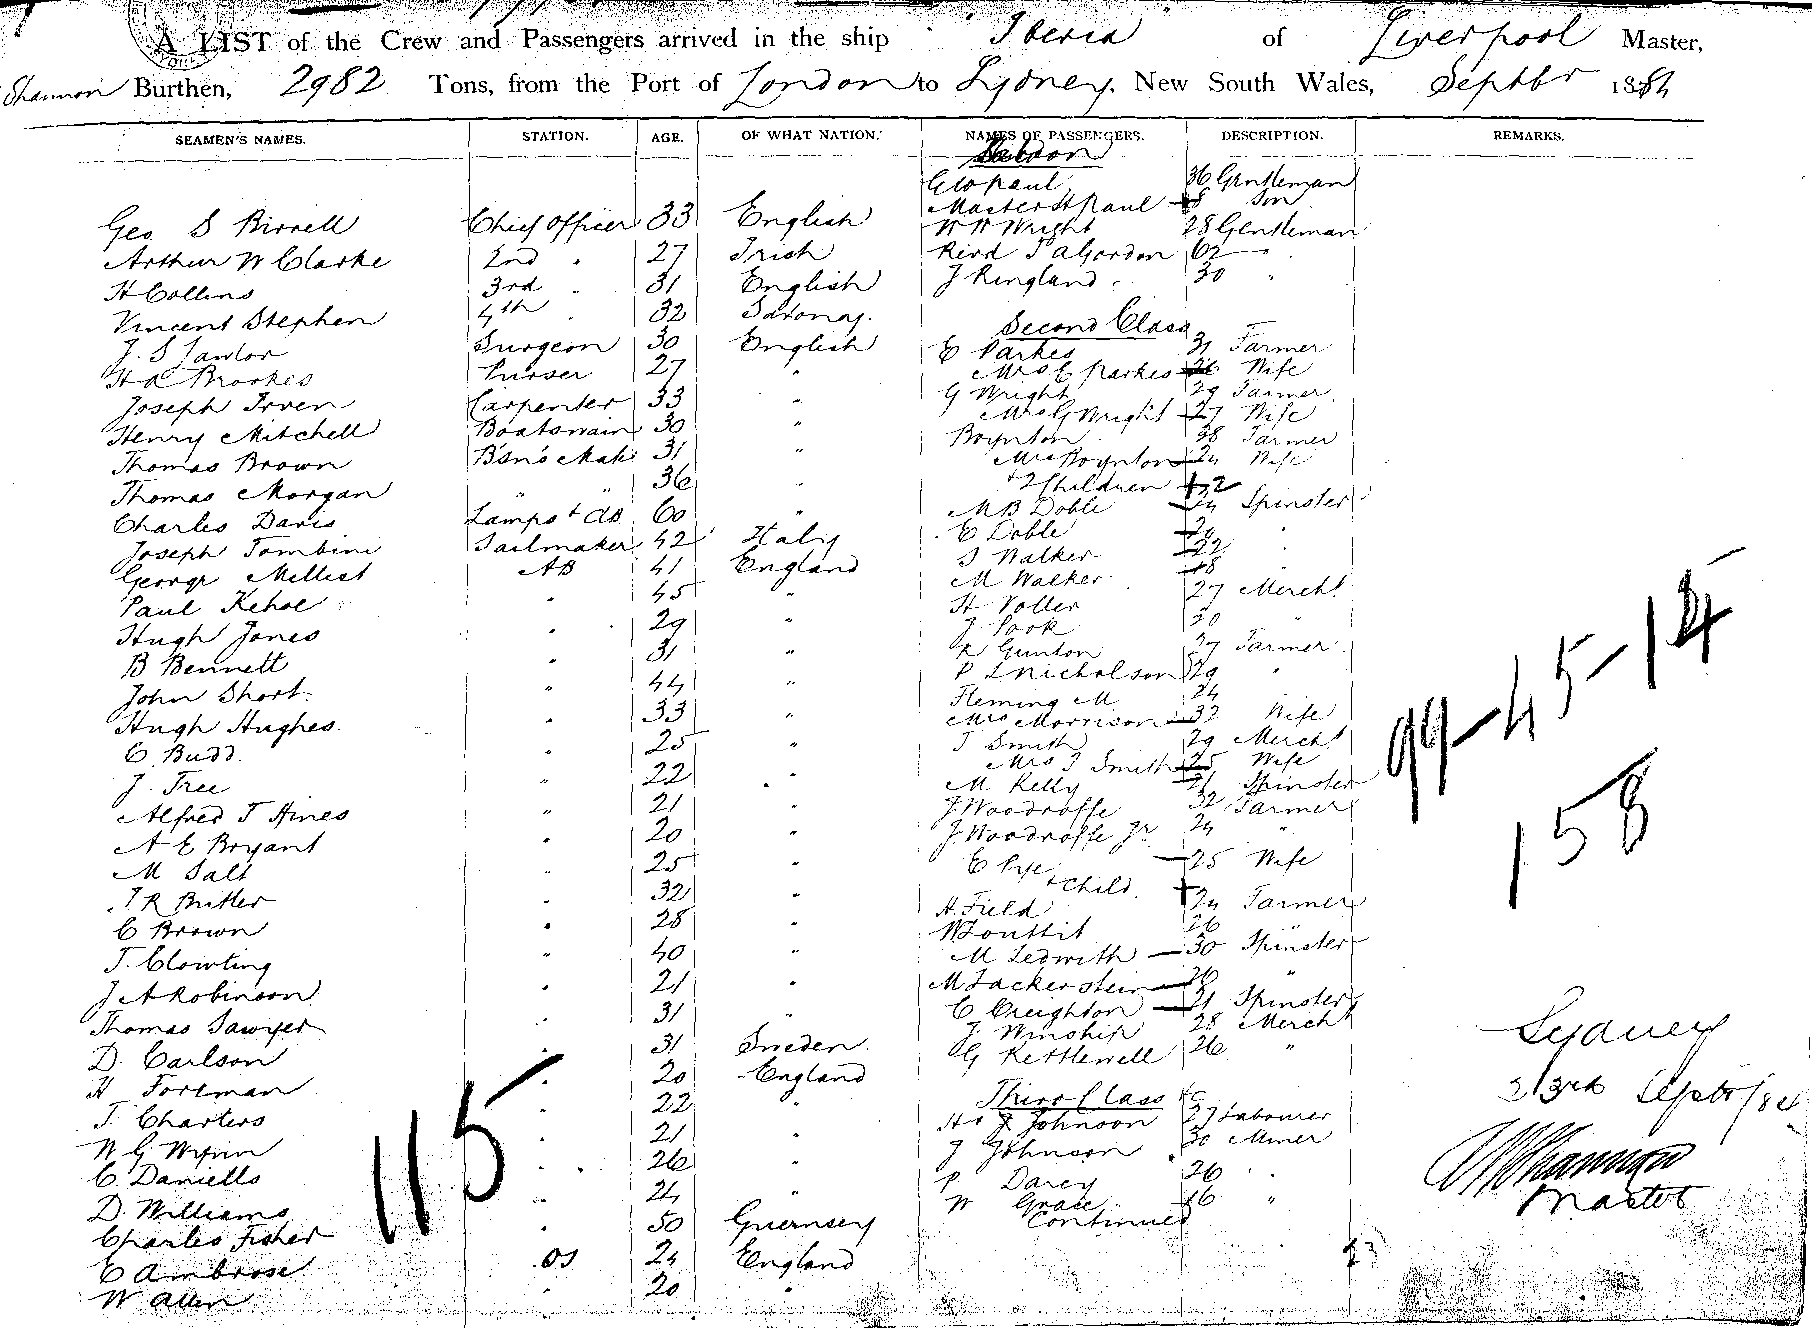 A LIST of the Crew and Passengers arrived in the ship "Iberia" of Liverpool Master,
Shannon Burthen, 2982 Tons, from the Port of London to Sydney, New South Wales, Septbr 1884
SEAMEN'S NAMES. STATION. AGE. OF WHAT NATION. NAMES OF PASSENGERS. DESCRIPTION. REMARKS.
Saloon
Geo Paul 36 Gentleman
Master H Paul 8 Son
Geo S Birrell Chief Officer 33 English W H Wright 28 Gentleman
Arthur W Clarke 2nd " 27 Irish Revd J A Gordon 62 "
H Collins 3rd " 31 English J Ringland 30 "
Vincent Stephen 4th " 32
Second Class
J. S Lawlor Surgeon 30 English E Parkes 31 Farmer
H A Brookes Purser 27 " Mrs E Parkes 26 Wife
Joseph Irven Carpenter 33 " G Wright 29 Farmer
Mrs G Wright 27 Wife
Henry Mitchell Boatswain 30 " Boynton 28 Farmer
Thomas Brown Bsn's Mate 31 " Mrs Boynton 24 Wife
Thomas Morgan " " 36 " + 2 Children 2
Charles Davis Lamps & AB 60 " M B Doble 24 Spinster
Joseph Tombini Sailmaker 42 Italy E Doble "
George Mellist AB 41 England S Walker 22 "
Paul Kehoe " 45 " M Walker 18
H Voller 27 Mercht
Hugh Jones " 29 " J Pook 20 "
B Bennett " 31 " R Gunton 27 Farmer
John Short " 44 " P L Nicholson 29 "
Fleming M 24
Hugh Hughes " 33 " Mrs Morrison 32 Wife
C Budd " 25 " J Smith 29 Mercht
Mrs J Smith 25 Wife
J. Tree " 22 " M Kelly 21 Spinster
Alfred T Hines " 21 " J Woodroffe 32 Farmer
A E Bryant " 20 " J Woodroffe Jr 24 "
M Salt " 25 " E Pye 25 Wife
+ Child
J R Butler " 32 " H. Field 24 Farmer
C Brown " 28 " 26 "
T. Clowting " 40 " M Ledwith 30 Spinster
J A Robinson " 21 " M Lackerstein 26 "
Thomas Sawyer " 31 " C Creighton 21 Spinster
J Winship 28 Mercht
D. Carlson " 31 Sweden G Kettlewell 26 "
H Fortman " 20 England
Third Class &c
J. Charters " 22 " H J Johnson 27 Labourer
W G " 21 " J Johnson 30 Miner
C. Daniells " 26 " P Darcy 26 "
D. Williams " 24 " W Grace 26 "
Charles Fisher " 50 Guernsey Continued
E Ambrose OS 24 England
W Allen " 20 "
115
99-45-14
158
Sydney
23rd Septr/84
W Shannon
Master